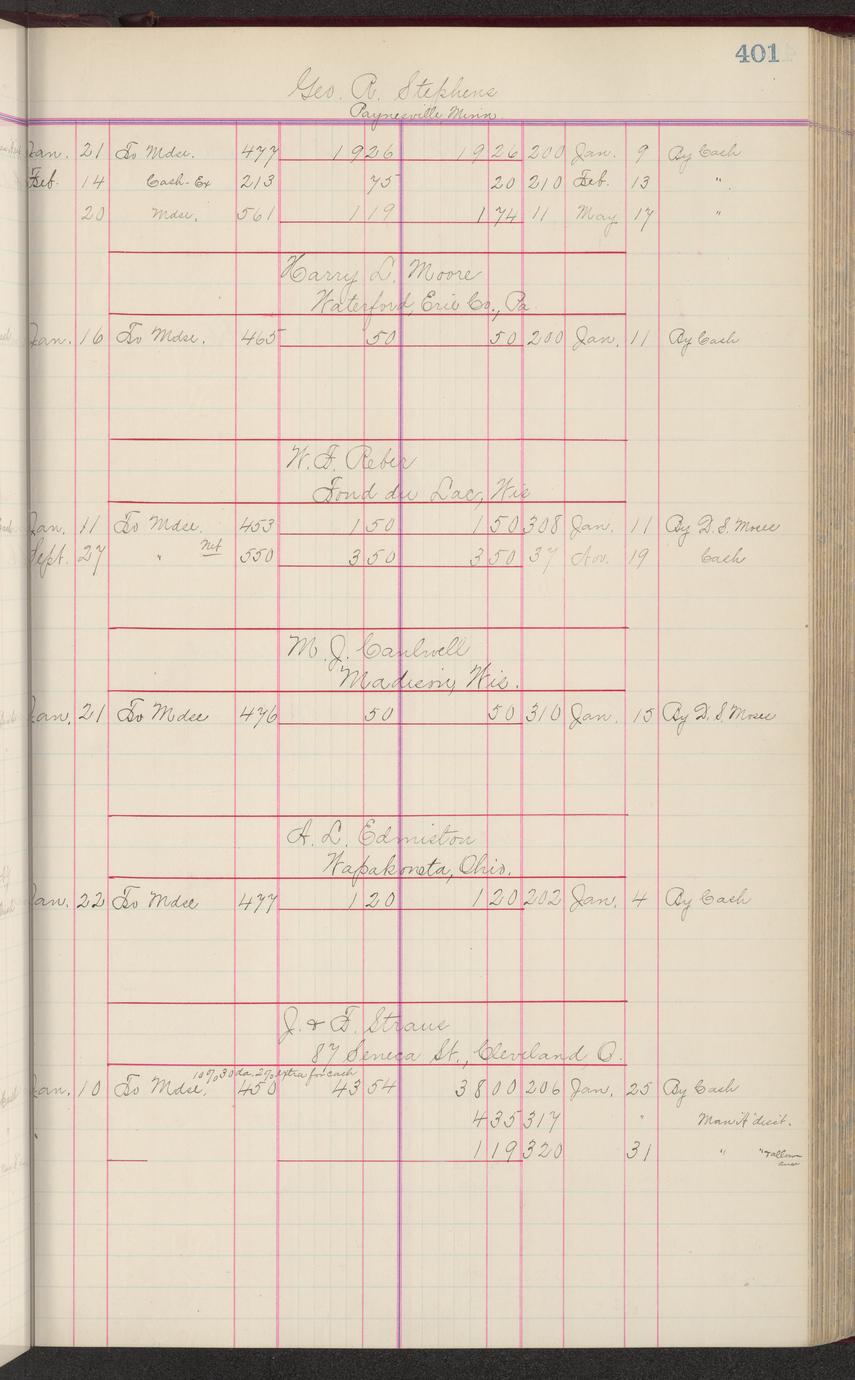 401
Geo. R. Stephens
Paynesville Minn.
Jan. 21 To Mdse. 477 19 26 19 26 200 Jan. 9 By Cash
Feb. 14 Cash-Ex 213 75 20 210 Feb. 13 "
20 Mdse. 561 1 19 1 74 11 May 17 "
Harry L. Moore
Waterford, Erie Co., Pa.
Jan. 16 To Mdse. 465 50 50 200 Jan. 11 By Cash
W. F. Reber
Fond du Lac, Wis
Jan. 11 To Mdse. 453 1 50 1 50 308 Jan. 11 By D. S. Moses
Sept. 27 " Net 550 3 50 3 50 37 Nov. 19 Cash
M. J. Cantwell
Madison, Wis.
Jan. 21 To Mdse 476 50 50 310 Jan. 15 By D. S. Moses
A. L. Edmiston
Wapakoneta, Ohio.
Jan. 22 To Mdse 477 1 20 1 20 202 Jan. 4 By Cash
J. & F. Straus
87 Seneca St., Cleveland O.
10% 30 da. 2% extra for cash
Jan. 10 To Mdse. 450 43 54 38 00 206 Jan. 25 By Cash
4 35 317 " Man'f'
1 19 320 31 " "